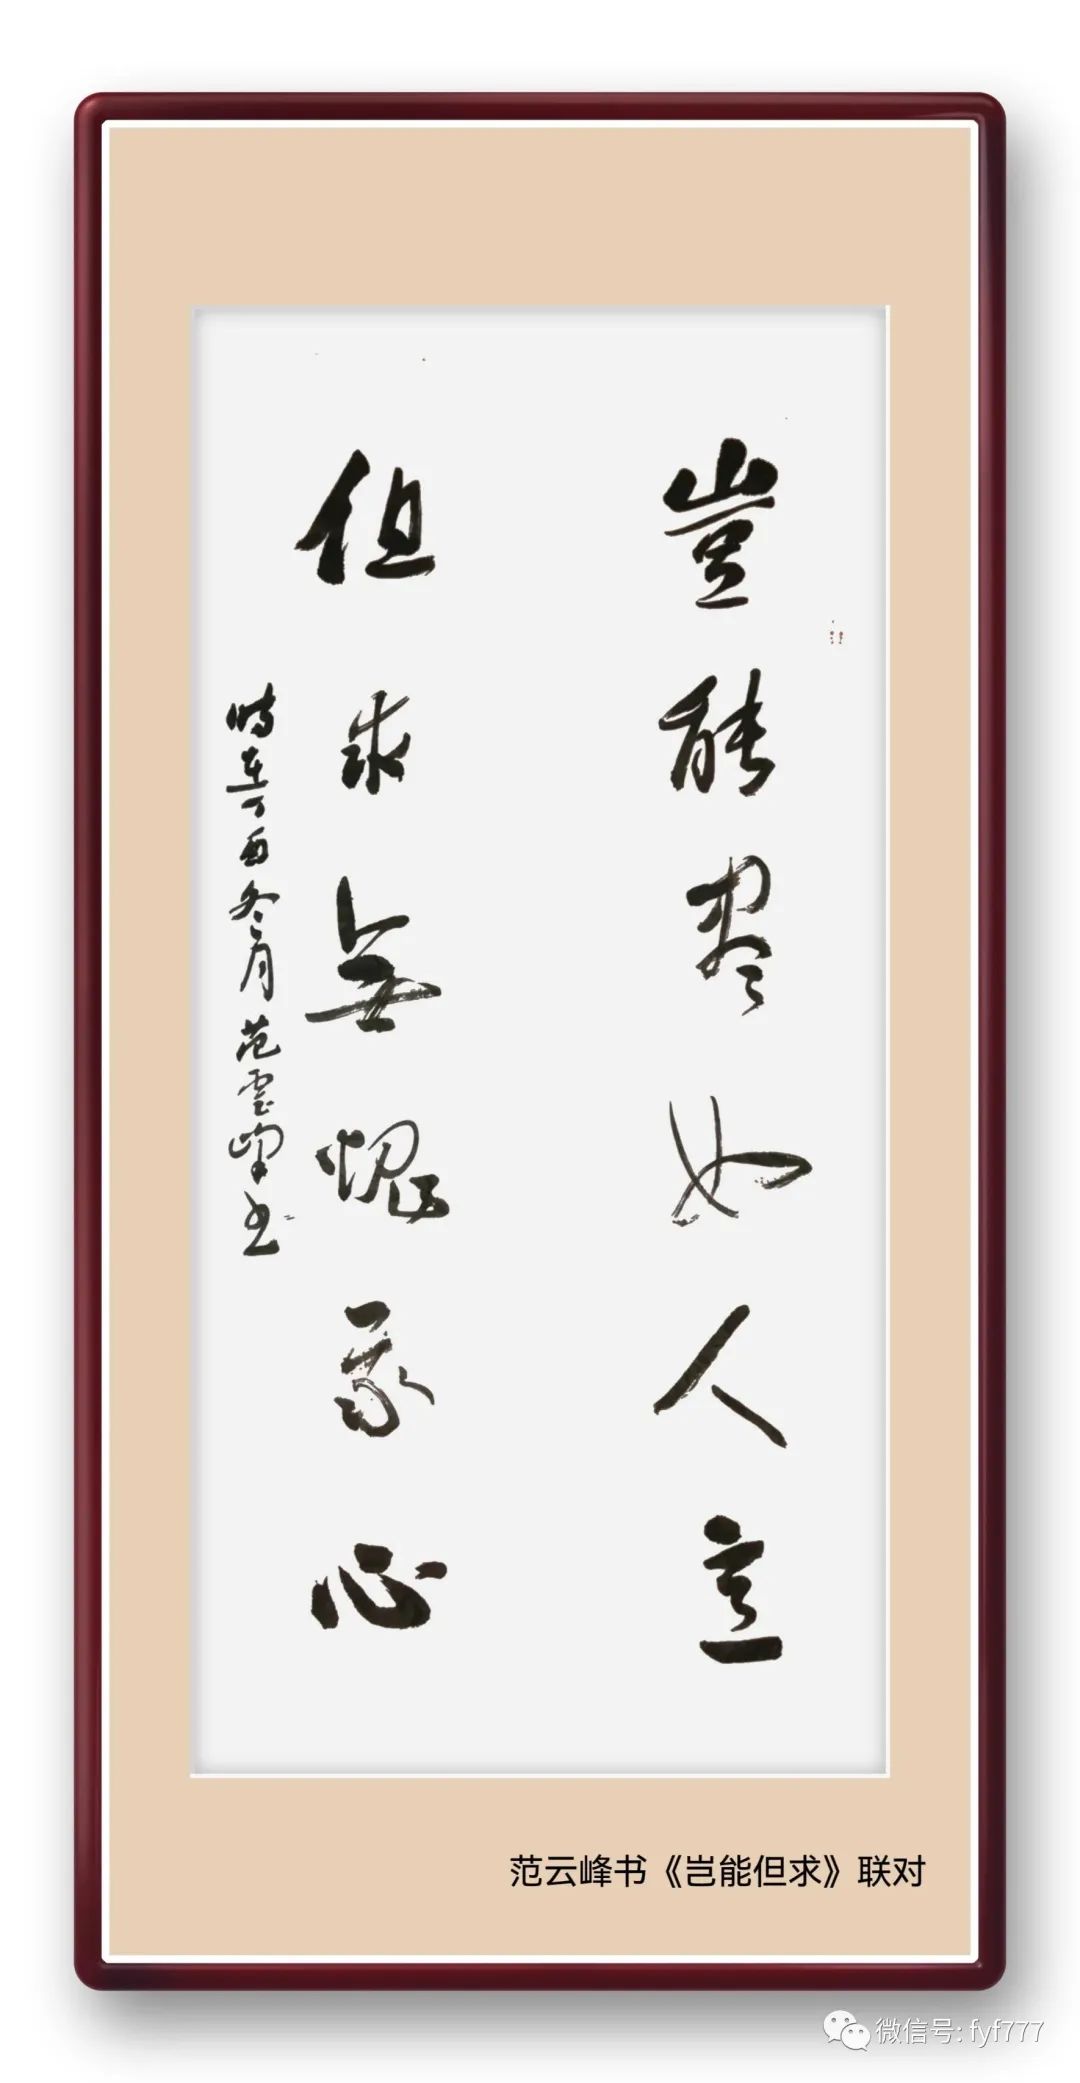 豈能盡如人意
但求無愧我心
時在丁酉冬月范雲峰书
范云峰书《岂能但求》联对
微信号: fyf777